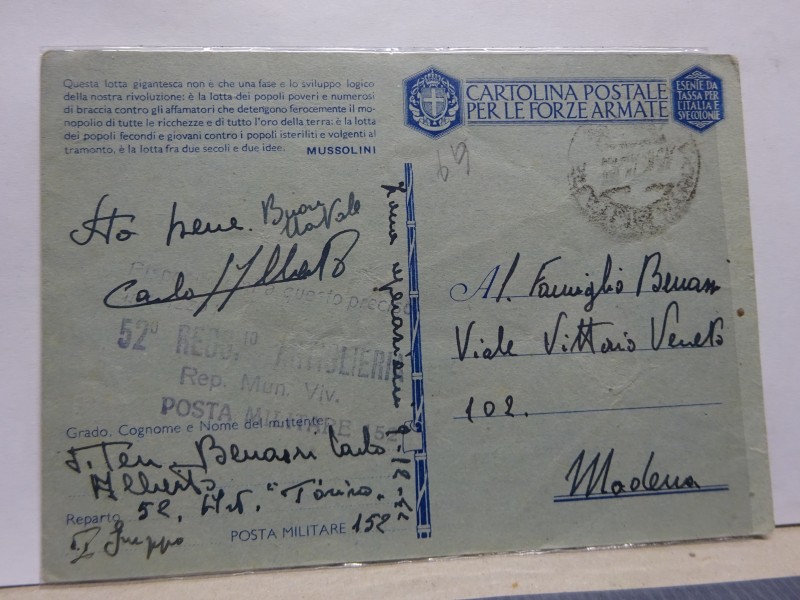 Questa lotta gigantesca non è che una fase e lo sviluppo logico
della nostra rivoluzione: è la lotta dei popoli poveri e numerosi
di braccia contro gli affamatori che detengono ferocemente il mo-
nopolio di tutte le ricchezze e di tutto l'oro della terra: è la lotta
dei popoli fecondi e giovani contro i popoli isteriliti e volgenti al
tramonto, è la lotta fra due secoli e due idee. MUSSOLINI
CARTOLINA POSTALE
PER LE FORZE ARMATE
ESENTE DA
TASSA PER
L'ITALIA E
SVE COLONIE
69
Sto bene. Buon
Natale
Carlo Alberto
a questo preciso
52° REGG. ARTIGLIERIA
Rep. Mun. Viv.
POSTA MILITARE 152
Zona operazioni
Grado, Cognome e Nome del mittente
S. Ten. Benassi Carlo
Alberto
Reparto 52. Art. "Torino"
I Gruppo
POSTA MILITARE 152
Al. Famiglio Benassi
Viale Vittorio Veneto
102.
Modena